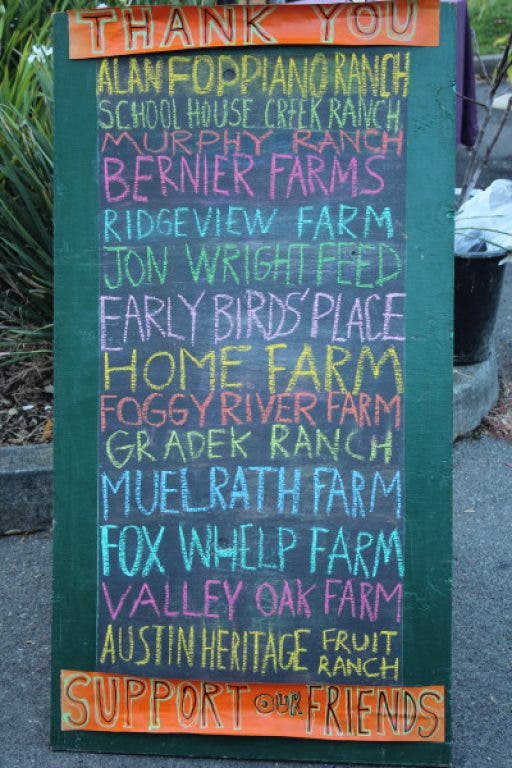 THANK YOU
ALAN FOPPIANO RANCH
SCHOOL HOUSE CREEK RANCH
MURPHY RANCH
BERNIER FARMS
RIDGEVIEW FARM
JON WRIGHT FEED
EARLY BIRDS' PLACE
HOME FARM
FOGGY RIVER FARM
GRADEK RANCH
MUELRATH FARM
FOX WHELP FARM
VALLEY OAK FARM
AUSTIN HERITAGE FRUIT RANCH
SUPPORT OUR FRIENDS